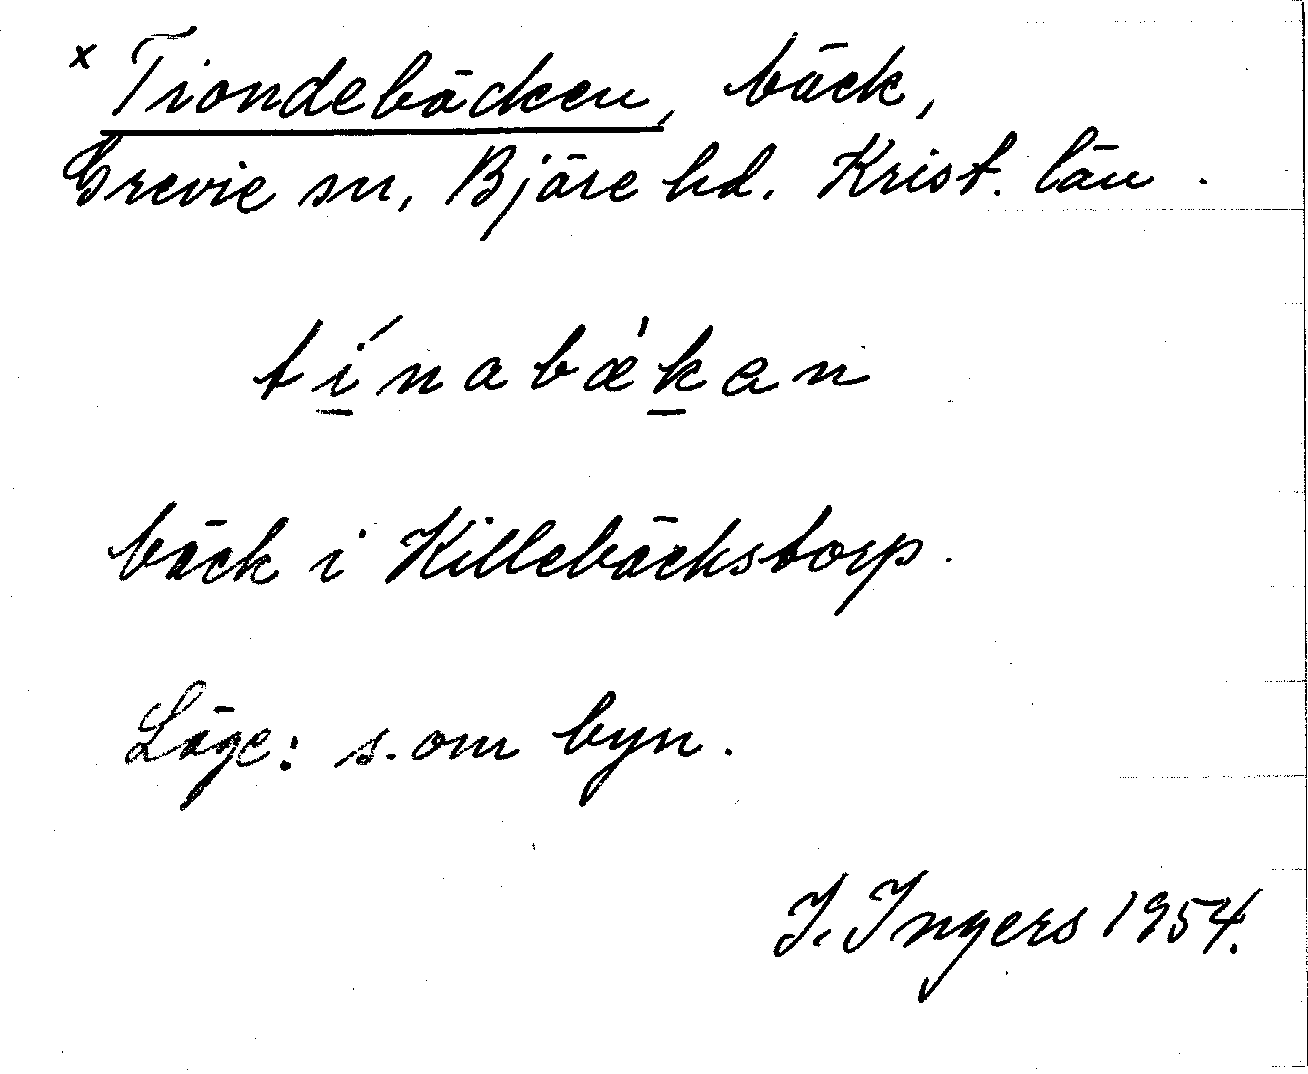 x Tiondebäcken, bäck,
Grevie sn, Bjäre hd. Krist. län.
tínabæ̀kan
bäck i Killebäckstorp.
Läge: s. om byn.
I. Ingers 1954.